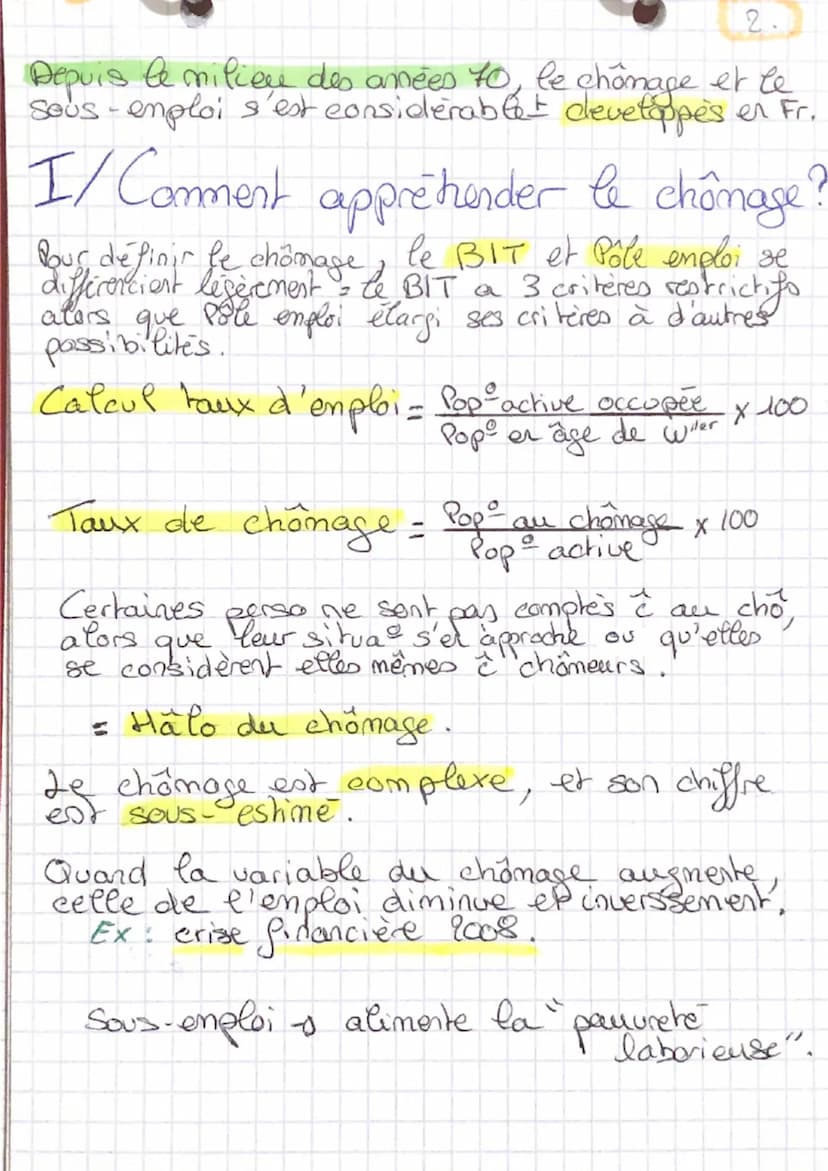 2.
Depuis le milieu des années 70, le chômage et le
sous-emploi s'est considérablt développés en Fr.
I/ Comment appréhender le chômage?
Pour définir le chômage, le BIT et Pôle emploi se
différencient légèrement = le BIT a 3 critères restrictifs
alors que Pôle emploi élargi ses critères à d'autres
possibilités.
Calcul taux d'emploi = Pop° active occupée / Pop° en âge de w^iler x 100
Taux de chômage = Pop° au chômage / Pop° active x 100
Certaines perso ne sont pas comptés ĉ au chô,
alors que leur situa° s'et approche ou qu'elles
se considèrent elles mêmes ĉ chômeurs.
= Hâlo du chômage.
Le chômage est complexe, et son chiffre
est sous-estimé.
Quand la variable du chômage augmente,
celle de l'emploi diminue et inverssement.
Ex : crise financière 2008.
Sous-emploi → alimente la "pauvreté
laborieuse".